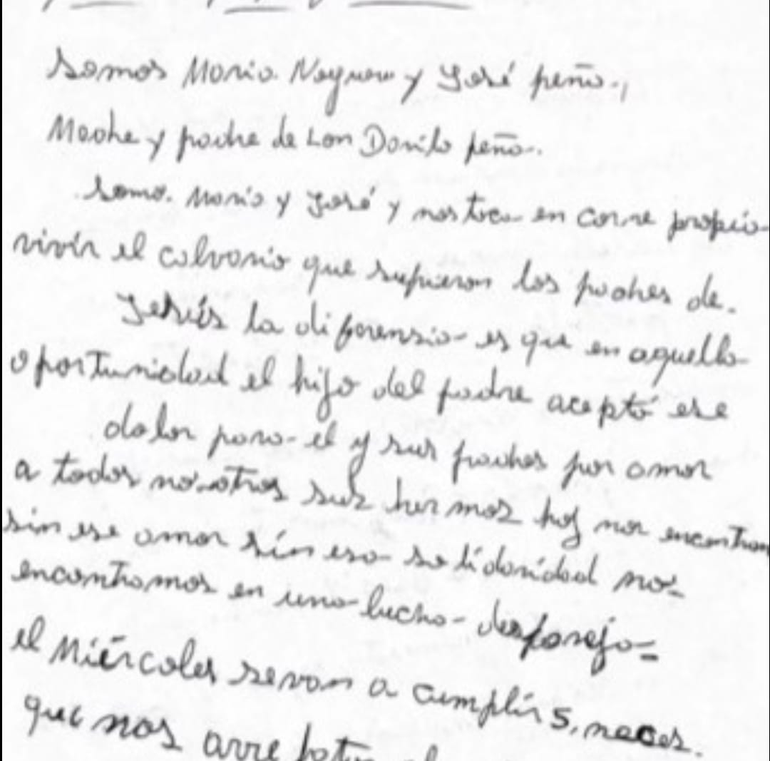 Somos Maria Noguera y José peña.,
Madre y padre de Lon Danilo peña.
Somo. Maria y José y nos toca en carne propia
vivir el calvario que supieron los padres de.
Jesús la diferensia es que en aquella
oportunidad el hijo del padre aceptó ese
dolor para el y sus padres por amor
a todos nosotros sus hermos hoy nos encontram
sin ese amor sin esa solidaridad nos
encontramos en una lucha despareja =
el Miércoles sevan a cumplir 5, meces.
que nos arre